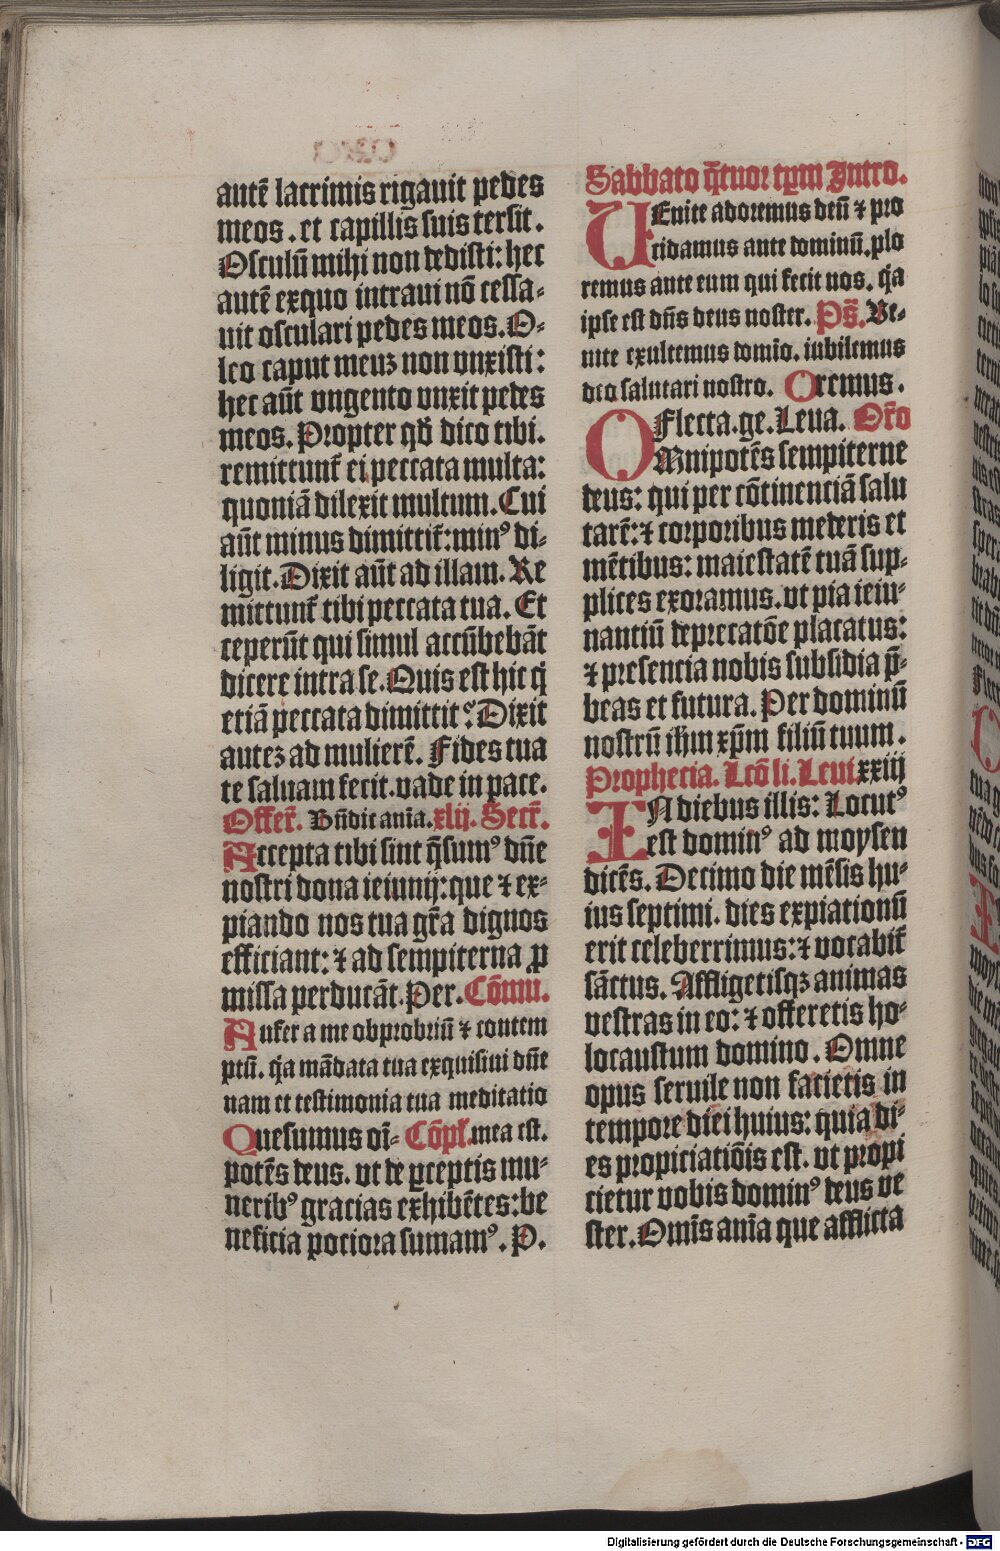 autē lacrimis rigauit pedes
meos. et capillis suis tersit.
Osculū mihi non dedisti: hec
autē exquo intraui nō cessa-
uit osculari pedes meos. O-
leo caput meuz non vnxisti:
hec aūt vngento vnxit pedes
meos. Propter qd̄ dico tibi.
remittunt̄ ei peccata multa:
quoniā dilexit multum. Cui
aūt minus dimittit̄: minꝰ di-
ligit. Dixit aūt ad illam. Re
mittunt̄ tibi peccata tua. Et
ceperūt qui simul accūbebāt
dicere intra se. Quis est hic q̄
etiā peccata dimittit? Dixit
autez ad mulierē. Fides tua
te saluam fecit. vade in pace.
Offer̄. Bn̄dic anīa. xlij. Secr̄.
Accepta tibi sint q̄sumꝰ dn̄e
nostri dona ieiunij: que ⁊ ex-
piando nos tua gr̄a dignos
efficiant: ⁊ ad sempiterna ꝓ
missa perducāt. Per. Cōmu.
Aufer a me obprobriū ⁊ contem
ptū. q̄a mādata tua exquisiui dn̄e
nam et testimonia tua meditatio
Quesumus oī- Cōpl̄. mea est.
potēs deus. vt de ꝑceptis mu-
neribꝰ gracias exhibētes: be
neficia pociora sumamꝰ. P.
Sabbato q̄tuor tꝑm Intro.
UEnite adoremus deū ⁊ pro
cidamus ante dominū. plo
remus ante eum qui fecit nos. q̄a
ipse est dn̄s deus noster. Ps̄. Ve-
nite exultemus domīo. iubilemus
deo salutari nostro. Oremus.
Flecta. ge. Leua. Or̄o
OMnipotēs sempiterne
deus: qui per cōtinenciā salu
tarē: ⁊ corporibus mederis et
mētibus: maiestatē tuā sup-
plices exoramus. vt pia ieiu-
nantiū deprecatōe placatus:
⁊ presencia nobis subsidia p̄-
beas et futura. Per dominū
nostrū ihm̄ xp̄m filiū tuum.
Prophecia. Lcō li. Leui xxiij
IN diebus illis: Locutꝰ
est dominꝰ ad moysen
dicēs. Decimo die mēsis hu-
ius septimi. dies expiationū
erit celeberrimus: ⁊ vocabit̄
sāctus. Affligetisqꝫ animas
vestras in eo: ⁊ offeretis ho-
locaustum domino. Omne
opus seruile non facietis in
tempore diei huius: quia di-
es propiciatiōis est. vt propi
cietur vobis dominꝰ deus ve
ster. Omīs anīa que afflicta